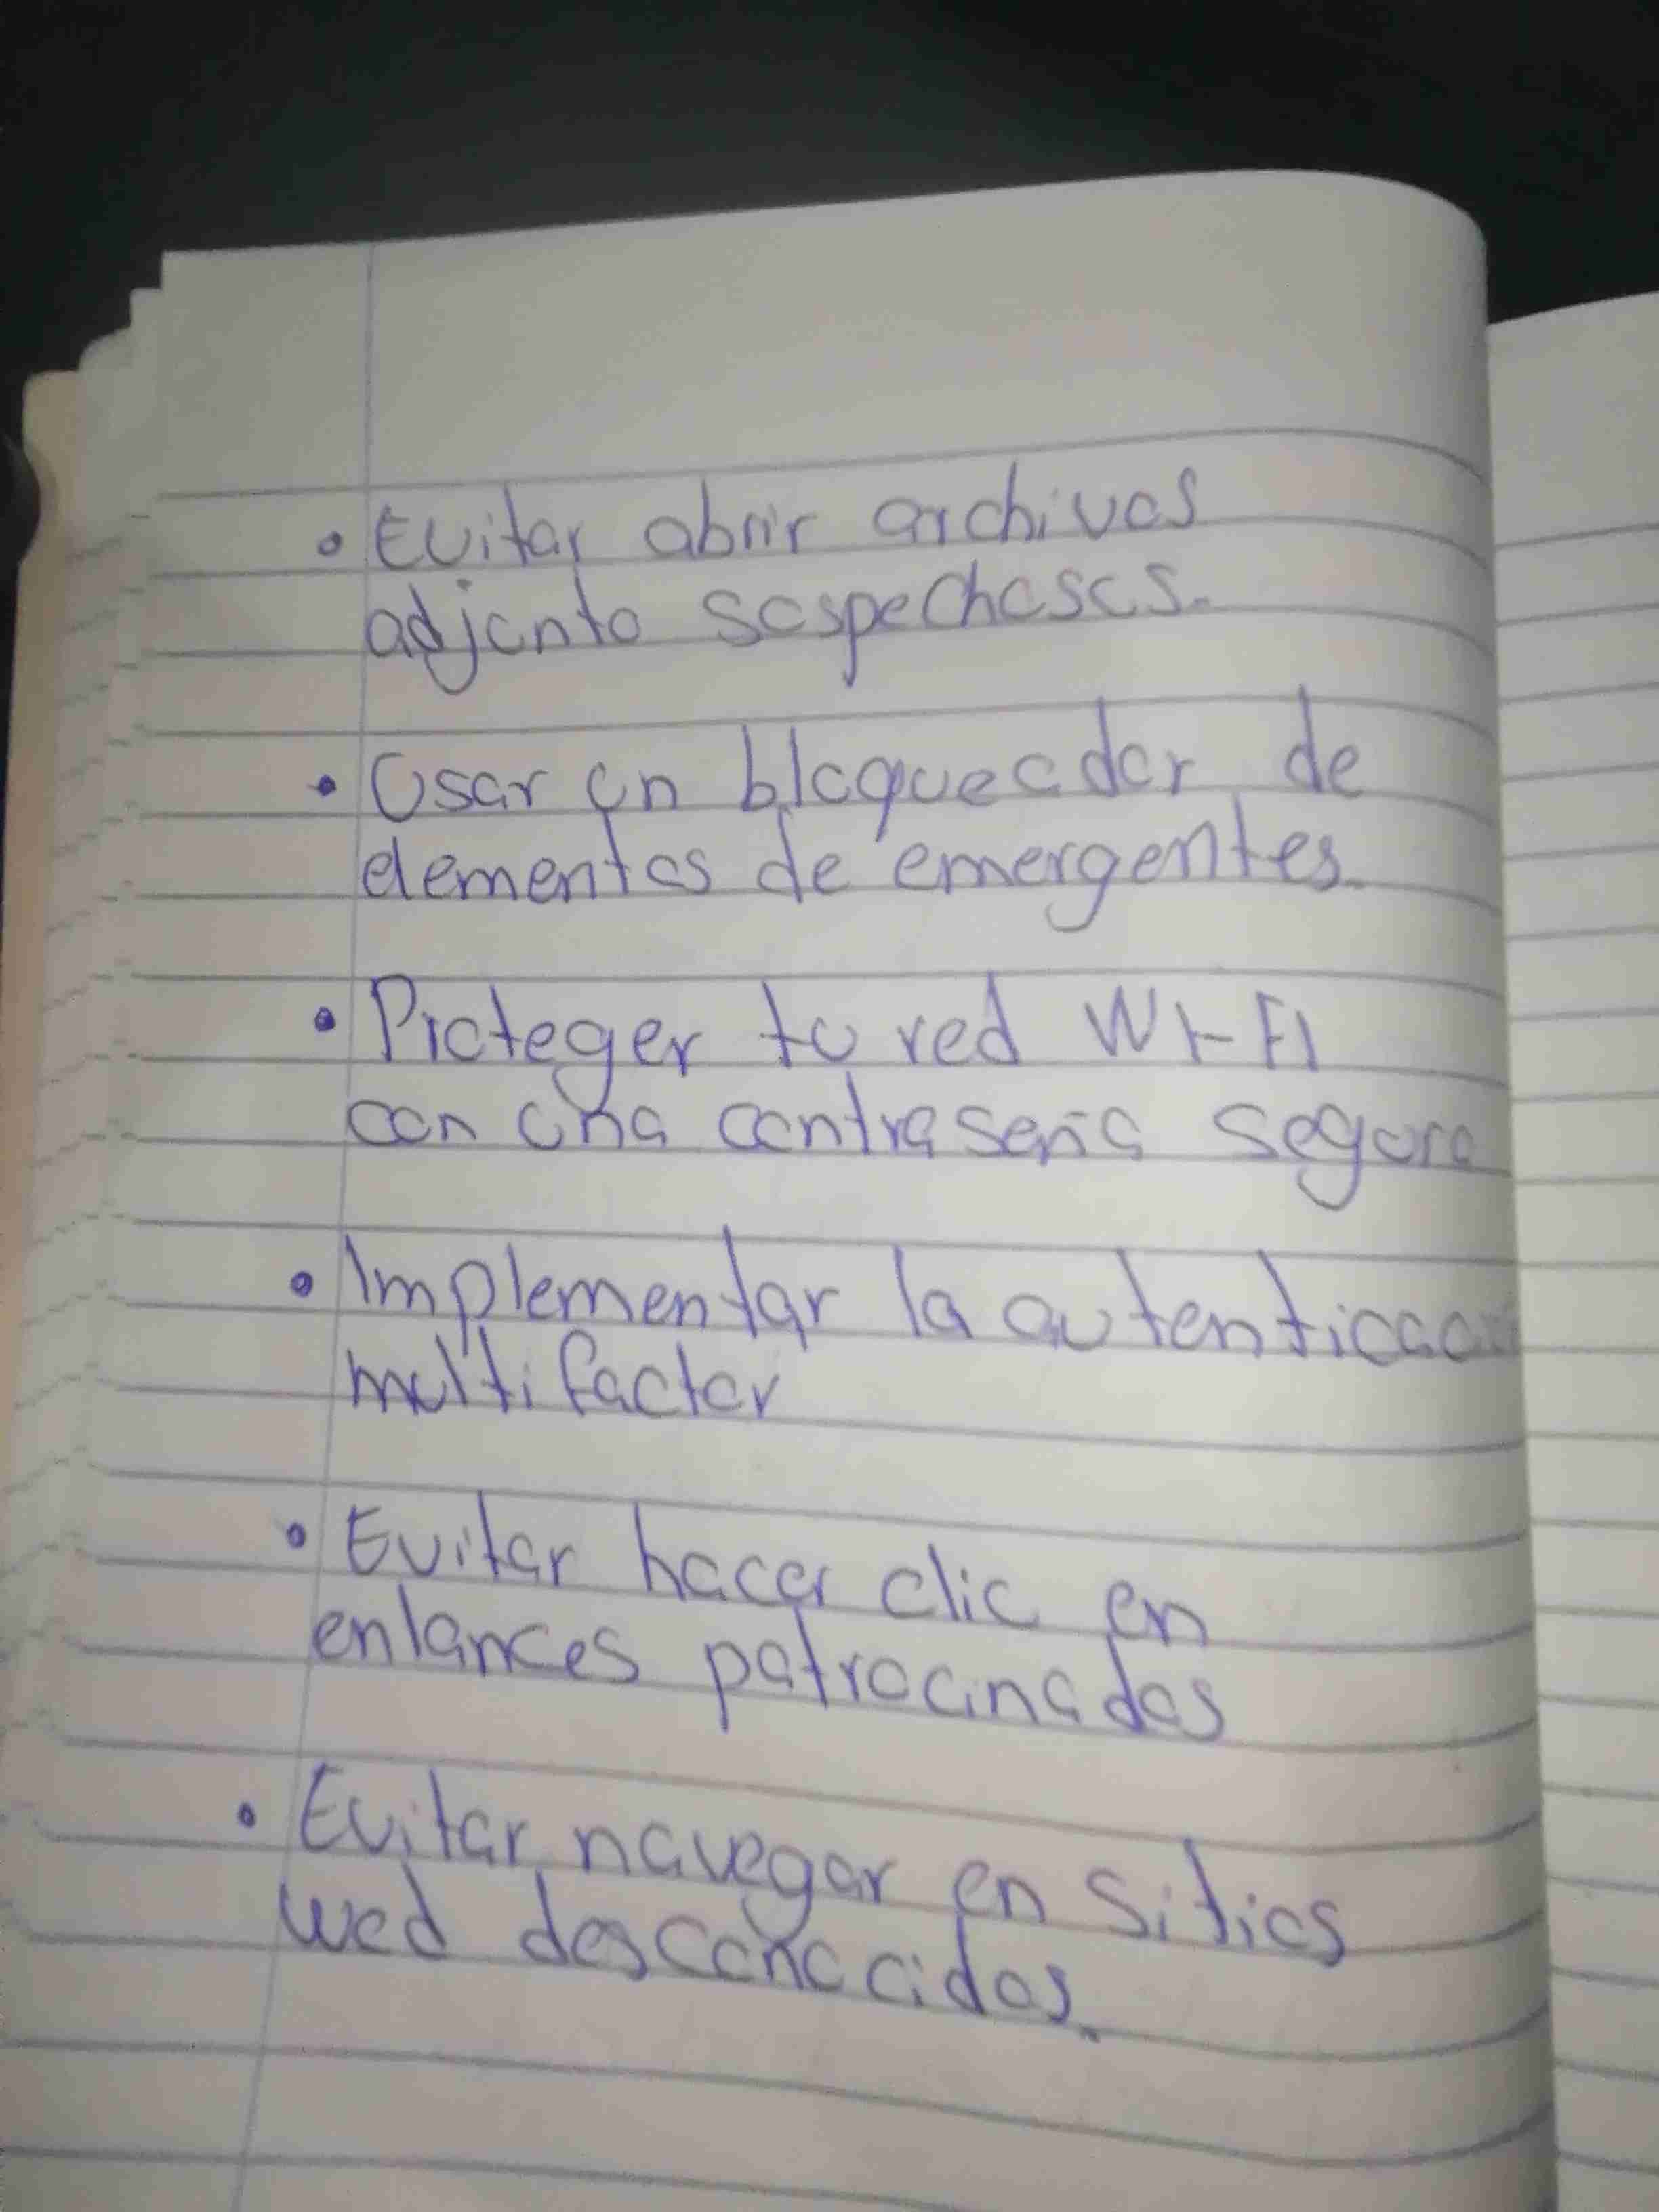 • Evitar abrir archivos
adjunto sospechosos.
• Usar un bloqueador de
elementos de emergentes.
• Proteger tu red WI-FI
con una contraseña segura
• Implementar la
multifactor
• Evitar hacer clic en
enlances patrocinados
• Evitar navegar en sitios
wed desconocidos.